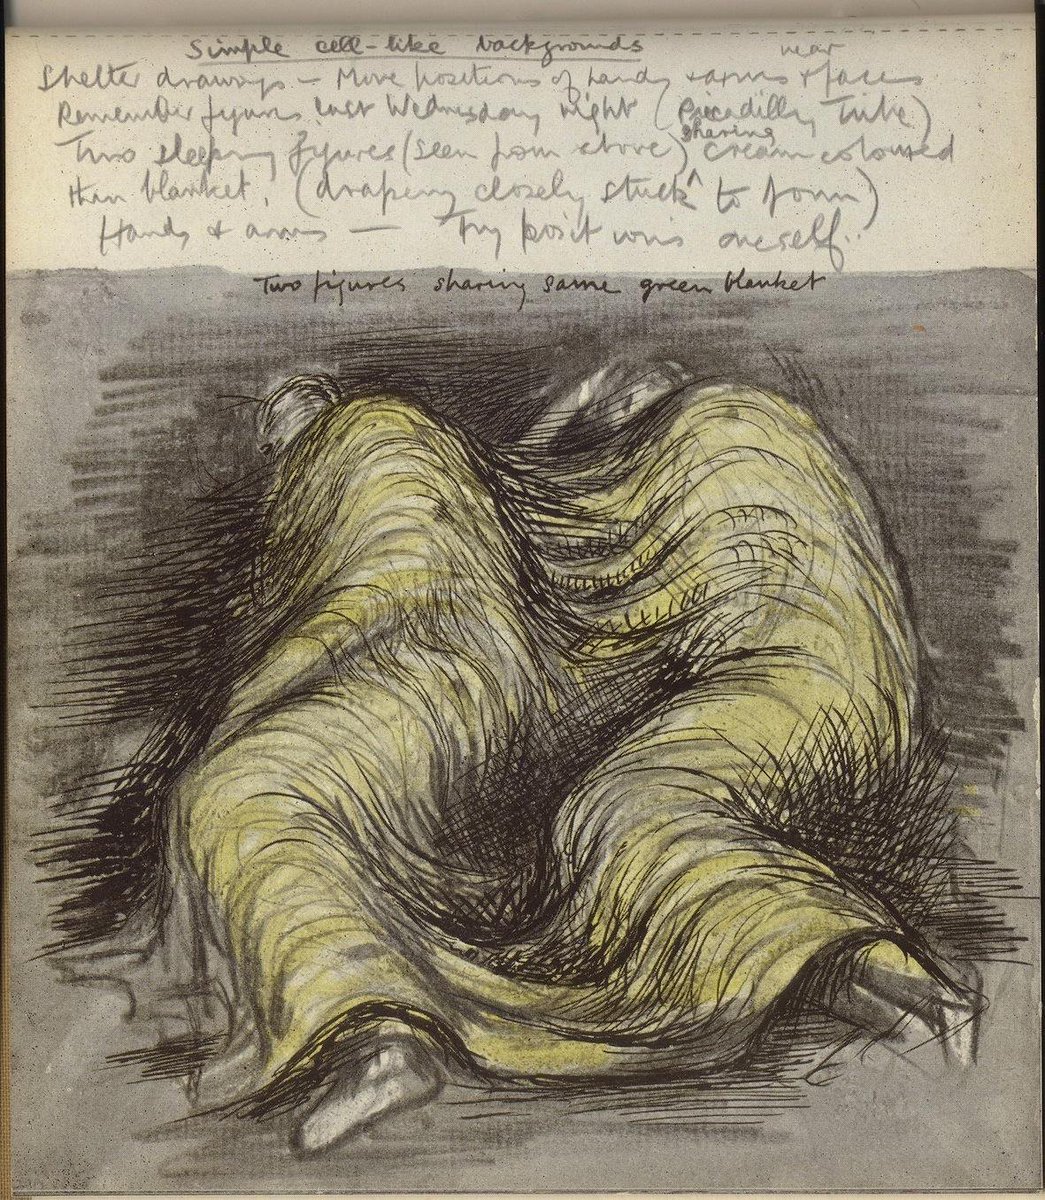 Simple cell-like backgrounds
near
Shelter drawings – More positions of hands & arms & faces
Remember figures last Wednesday night (Piccadilly Tube)
sharing
Two sleeping figures (seen from above) cream coloured
thin blanket, (drapery closely stuck to form)
Hands & arms — Try positions oneself.
Two figures sharing same green blanket